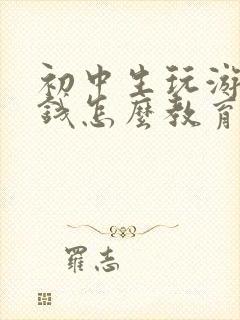 初中生玩游
錢怎麼教育
羅志